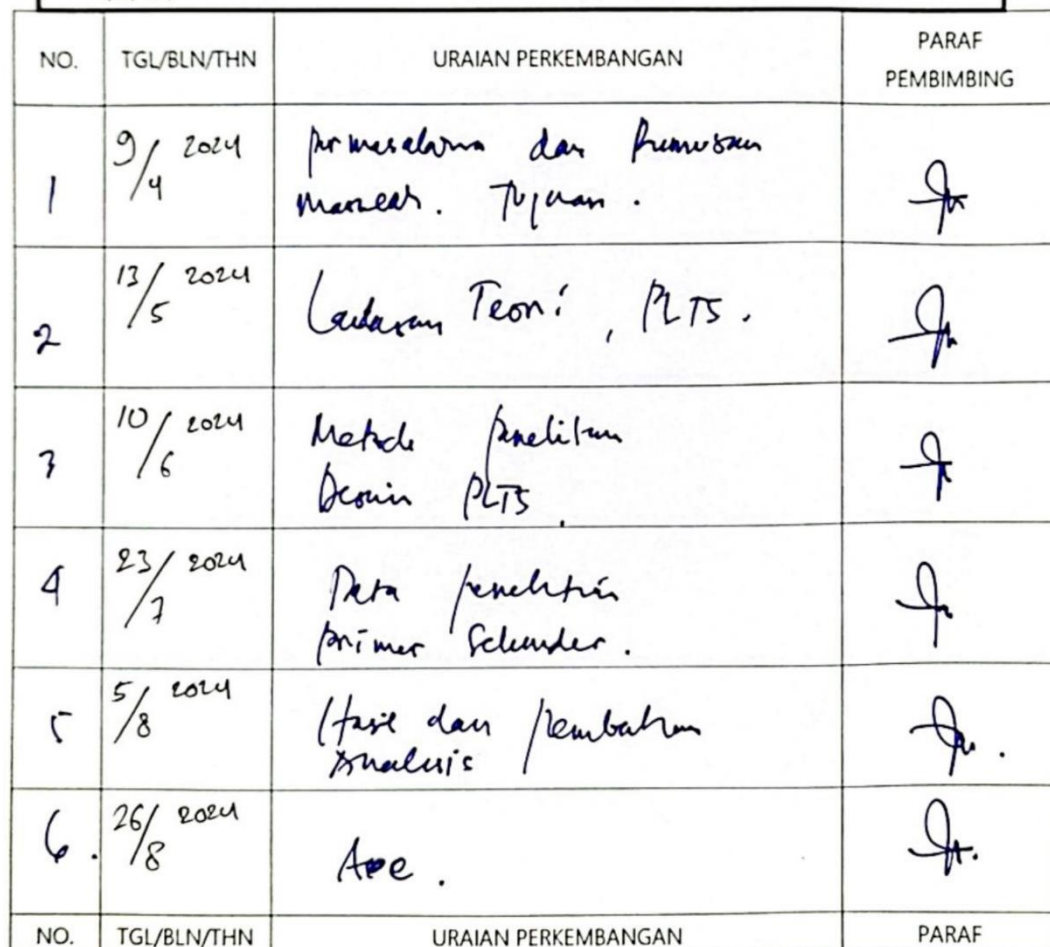 NO. TGL/BLN/THN URAIAN PERKEMBANGAN PARAF
PEMBIMBING
1 9/4 2024 permasalahan dan Rumusan
Masalah. Tujuan.
2 13/5 2024 Landasan Teori, PLTS.
3 10/6 2024 Metode penelitian
Desain PLTS.
4 23/7 2024 Data penelitian
primer Sekunder.
5 5/8 2024 Hasil dan pembahasan
Analisis
6. 26/8 2024 Acc.
NO. TGL/BLN/THN URAIAN PERKEMBANGAN PARAF